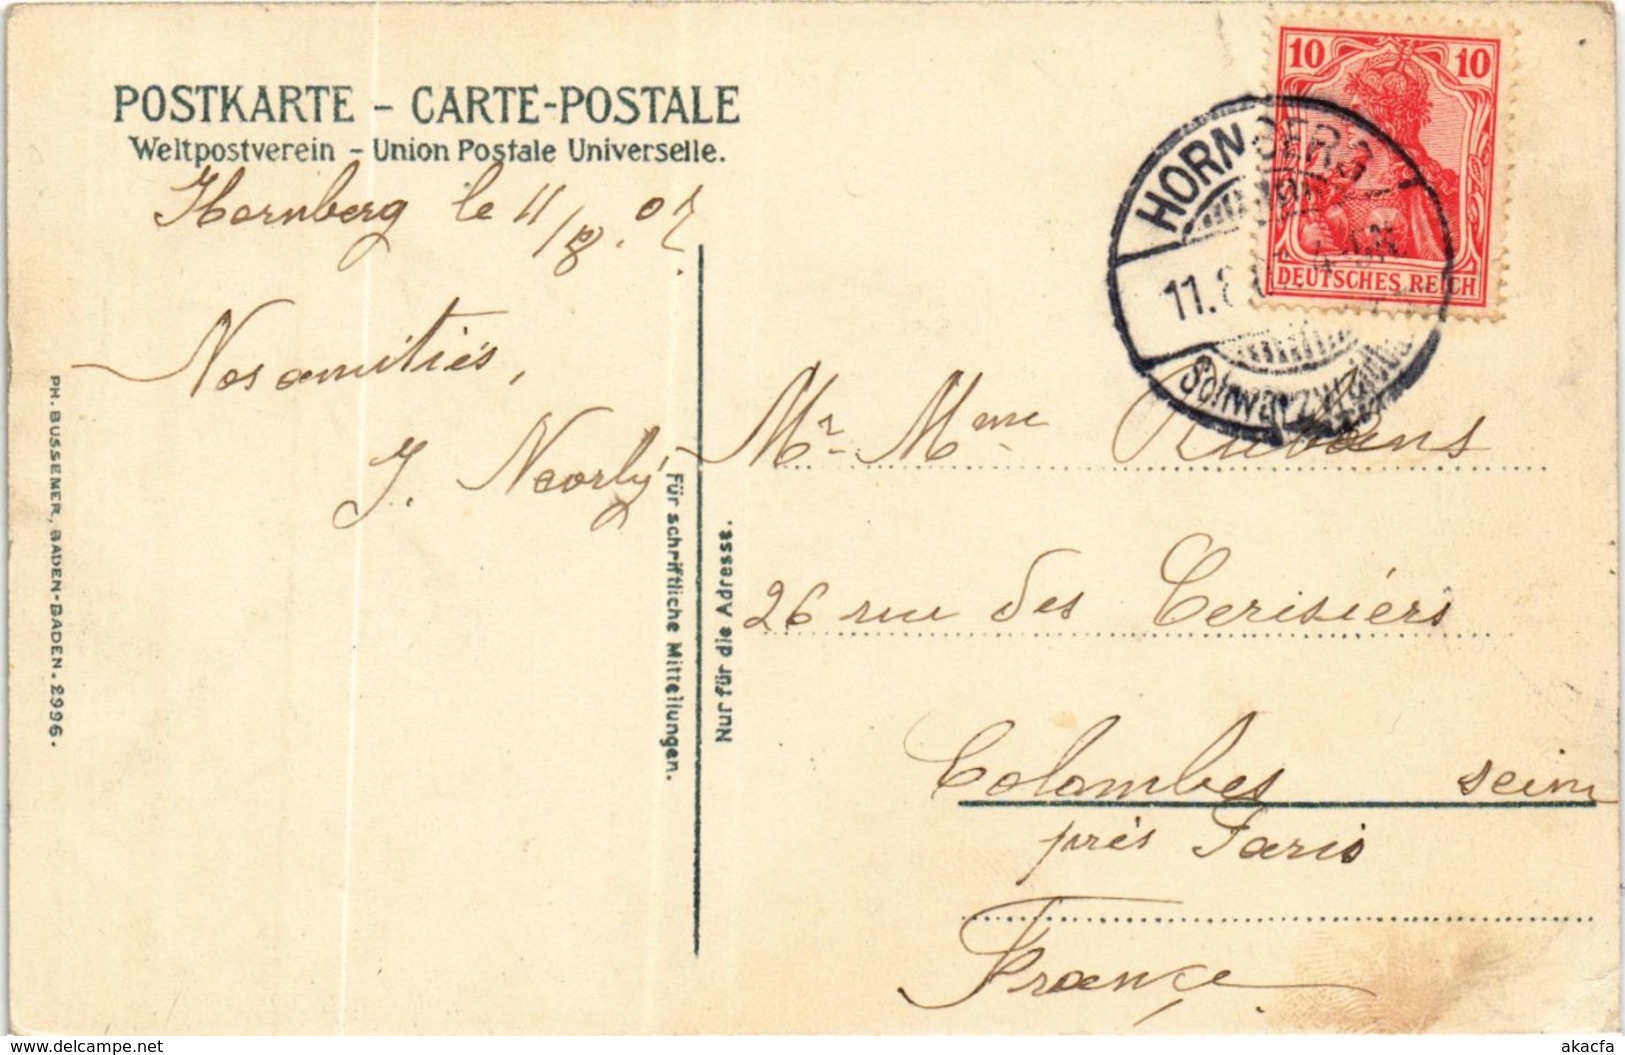 POSTKARTE – CARTE-POSTALE
Weltpostverein – Union Postale Universelle.
Hornberg le 11/8.07
Nos amitiés,
J. Neorly
PH. BUSSEMER, BADEN-BADEN. 2996.
Für schriftliche Mitteilungen.
Nur für die Adresse.
10 10
DEUTSCHES REICH
HORNBERG
11.8
Schwarzwaldb
Mr Mme Rubens
26 rue des Cerisiers
Colombes seine
près Paris
France
akacfa